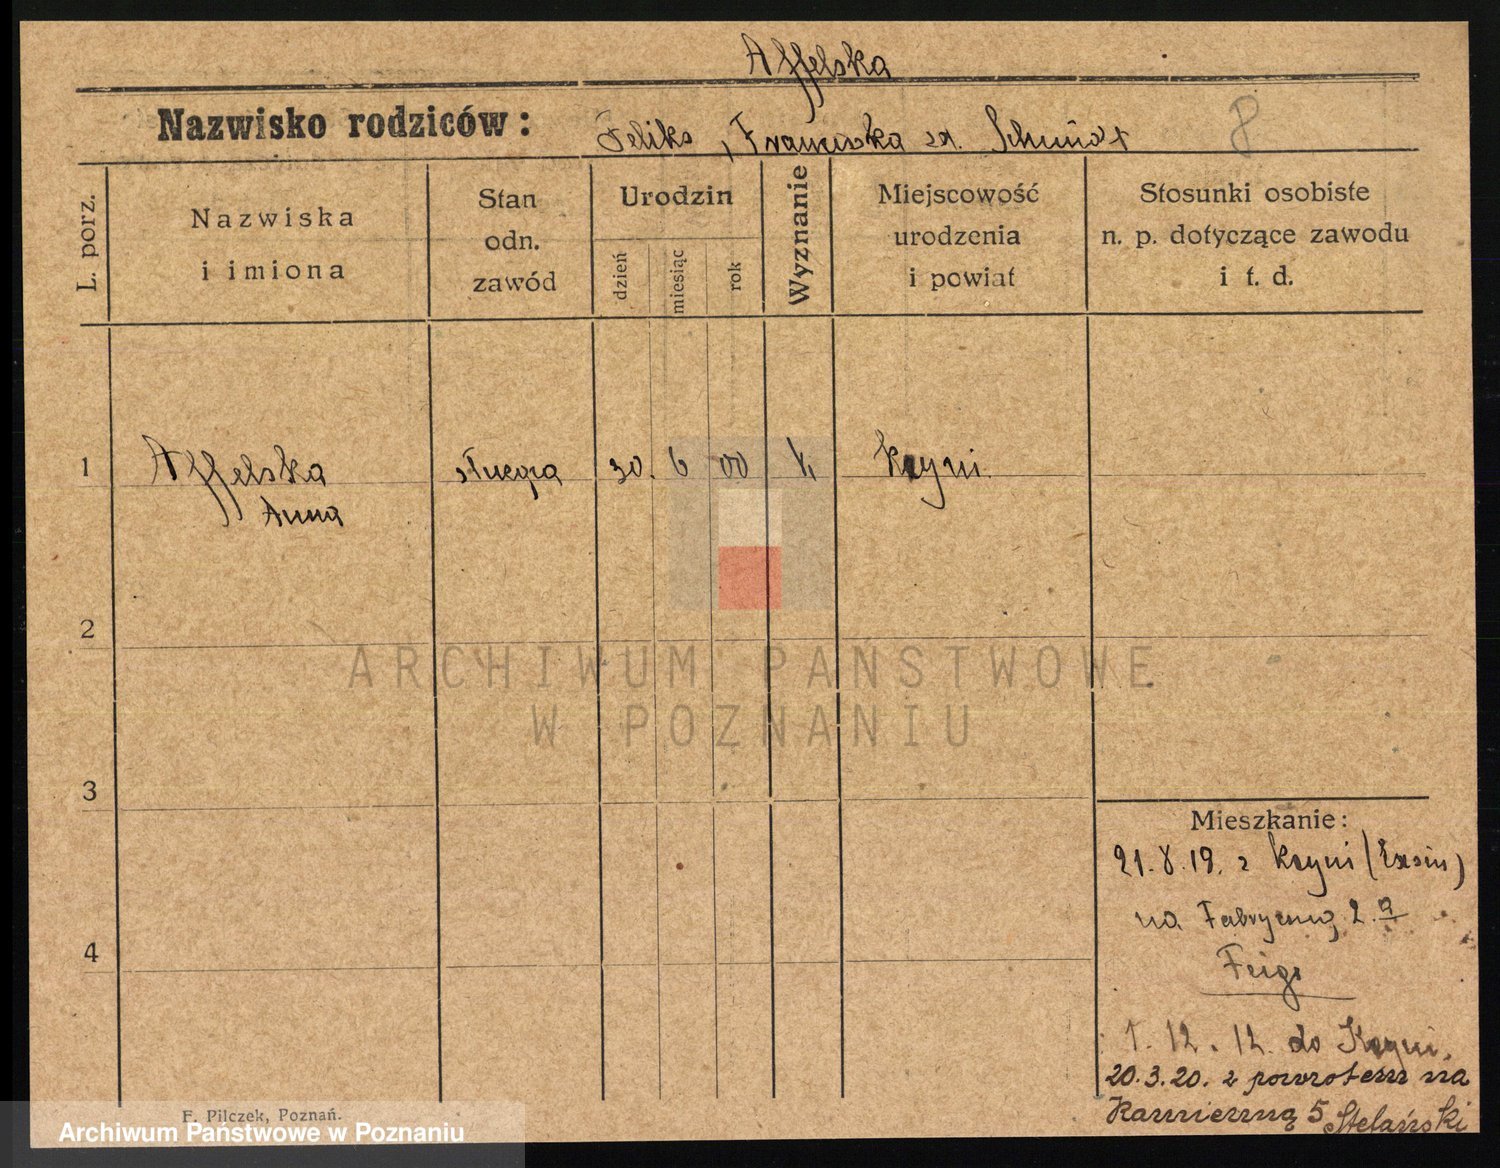 Affelska
Nazwisko rodziców: Feliks, Franciszka zd. Schmidt
8
L. porz.
Nazwiska
i imiona
Stan
odn.
zawód
Urodzin
dzień
miesiąc
rok
Wyznanie
Miejscowość
urodzenia
i powiat
Stosunki osobiste
n. p. dotyczące zawodu
i t. d.
1 Affelska służąca 30. 6 00 k. Kcyni
Anna
2
ARCHIWUM PAŃSTWOWE
W POZNANIU
3
4
Mieszkanie:
21.8.19. z Kcyni (Exsin)
na Fabryczną 2.
Feige
1. 12. 12. do Kcyni.
20.3.20. z powrotem na
Kamienną 5 Stefański
F. Pilczek, Poznań.
Archiwum Państwowe w Poznaniu